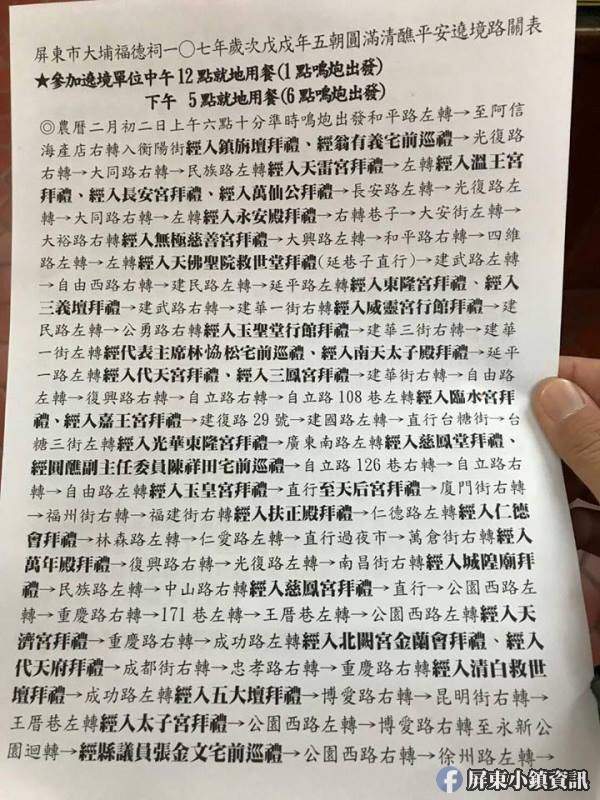 屏東市大埔福德祠一〇七年歲次戊戌年五朝圓滿清醮平安遶境路關表
★參加遶境單位中午12點就地用餐(1點鳴炮出發)
下午 5點就地用餐(6點鳴炮出發)
◎農曆二月初二日上午六點十分準時鳴炮出發和平路左轉→至阿信
海產店右轉入衡陽街經入鎮旂壇拜禮、經翁有義宅前巡禮→光復路
右轉→大同路右轉→民族路左轉經入天雷宮拜禮→左轉經入溫王宮
拜禮、經入長安宮拜禮、經入萬仙公拜禮→長安路左轉→光復路左
轉→大同路右轉→左轉經入永安殿拜禮→右轉巷子→大安街左轉→
大裕路右轉經入無極慈善宮拜禮→大興路左轉→和平路右轉→四維
路左轉→左轉經入天佛聖院救世堂拜禮(延巷子直行)→建武路左轉
→自由西路右轉→建民路左轉→延平路左轉經入東隆宮拜禮、經入
三義壇拜禮→建武路右轉→建華一街右轉經入威靈宮行館拜禮→建
民路左轉→公勇路右轉經入玉聖堂行館拜禮→建華三街右轉→建華
一街左轉經代表主席林恊松宅前巡禮、經入南天太子殿拜禮→延平
一路左轉經入代天宮拜禮、經入三鳳宮拜禮→建華街右轉→自由路
左轉→復興路右轉→自立路右轉→自立路108巷左轉經入臨水宮拜
禮、經入嘉王宮拜禮→建復路29號→建國路左轉→直行台糖街→台
糖三街左轉經入光華東隆宮拜禮→廣東南路左轉經入慈鳳堂拜禮、
經圓醮副主任委員陳祥田宅前巡禮→自立路126巷右轉→自立路右
轉→自由路左轉經入玉皇宮拜禮→直行至天后宮拜禮→廈門街右轉
→福州街右轉→福建街右轉經入扶正殿拜禮→仁德路左轉經入仁德
會拜禮→林森路左轉→仁愛路左轉→直行過夜市→萬倉街右轉經入
萬年殿拜禮→復興路右轉→光復路左轉→南昌街右轉經入城隍廟拜
禮→民族路左轉→中山路右轉經入慈鳳宮拜禮→直行→公園西路左
轉→重慶路右轉→171巷左轉→王厝巷左轉→公園西路左轉經入天
濟宮拜禮→重慶路右轉→成功路左轉經入北闕宮金蘭會拜禮、經入
代天府拜禮→成都街右轉→忠孝路右轉→重慶路右轉經入清白救世
壇拜禮→成功路左轉經入五大壇拜禮→博愛路右轉→昆明街右轉→
王厝巷左轉經入太子宮拜禮→公園西路左轉→博愛路右轉至永新公
園迴轉→經縣議員張金文宅前巡禮→公園西路右轉→徐州路左轉→
屏東小鎮資訊